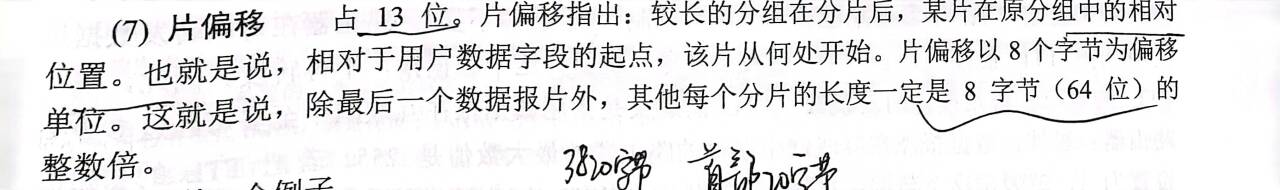 (7) 片偏移 占 13 位。片偏移指出：较长的分组在分片后，某片在原分组中的相对
位置。也就是说，相对于用户数据字段的起点，该片从何处开始。片偏移以 8 个字节为偏移
单位。这就是说，除最后一个数据报片外，其他每个分片的长度一定是 8 字节（64 位）的
整数倍。
3820字节 首部20字节
个例子